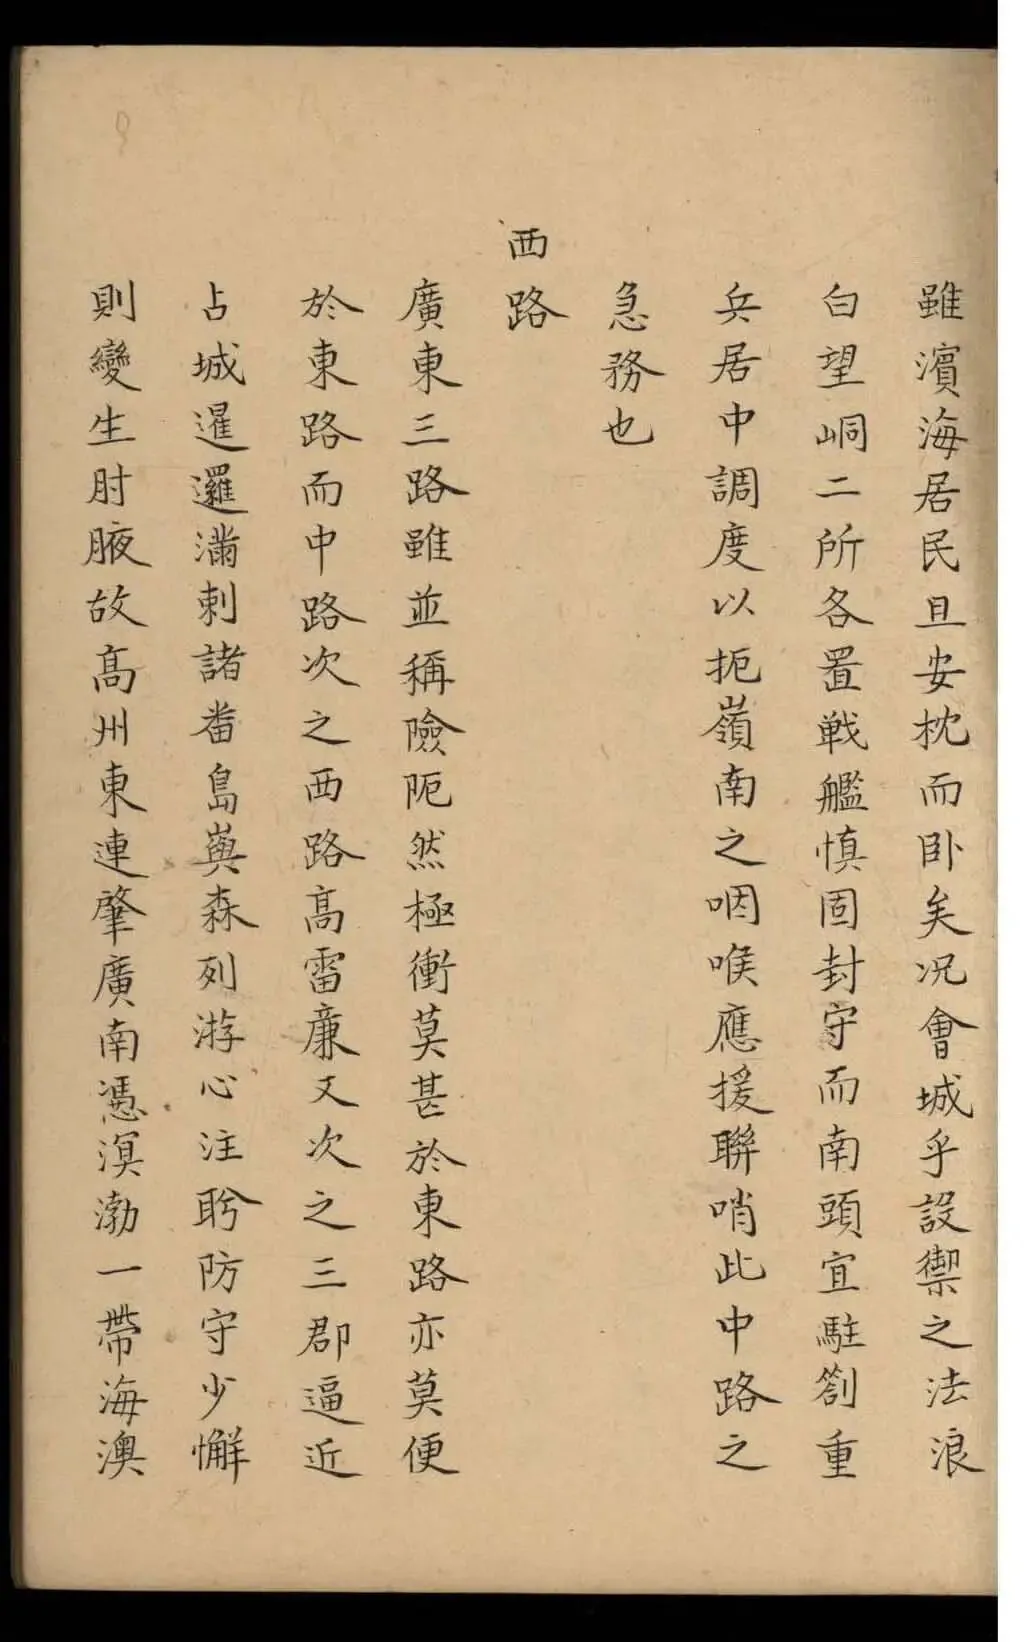 雖濱海居民且安枕而卧矣况會城乎設禦之法浪
白望峒二所各置戦艦慎固封守而南頭宜駐劄重
兵居中調度以扼嶺南之咽喉應援聯哨此中路之
急務也
西路
廣東三路雖並稱險阨然極衝莫甚於東路亦莫便
於東路而中路次之西路髙雷亷又次之三郡逼近
占城暹邏滿剌諸番島㠘森列游心注盻防守少懈
則變生肘腋故髙州東連肇廣南憑溟渤一帶海澳